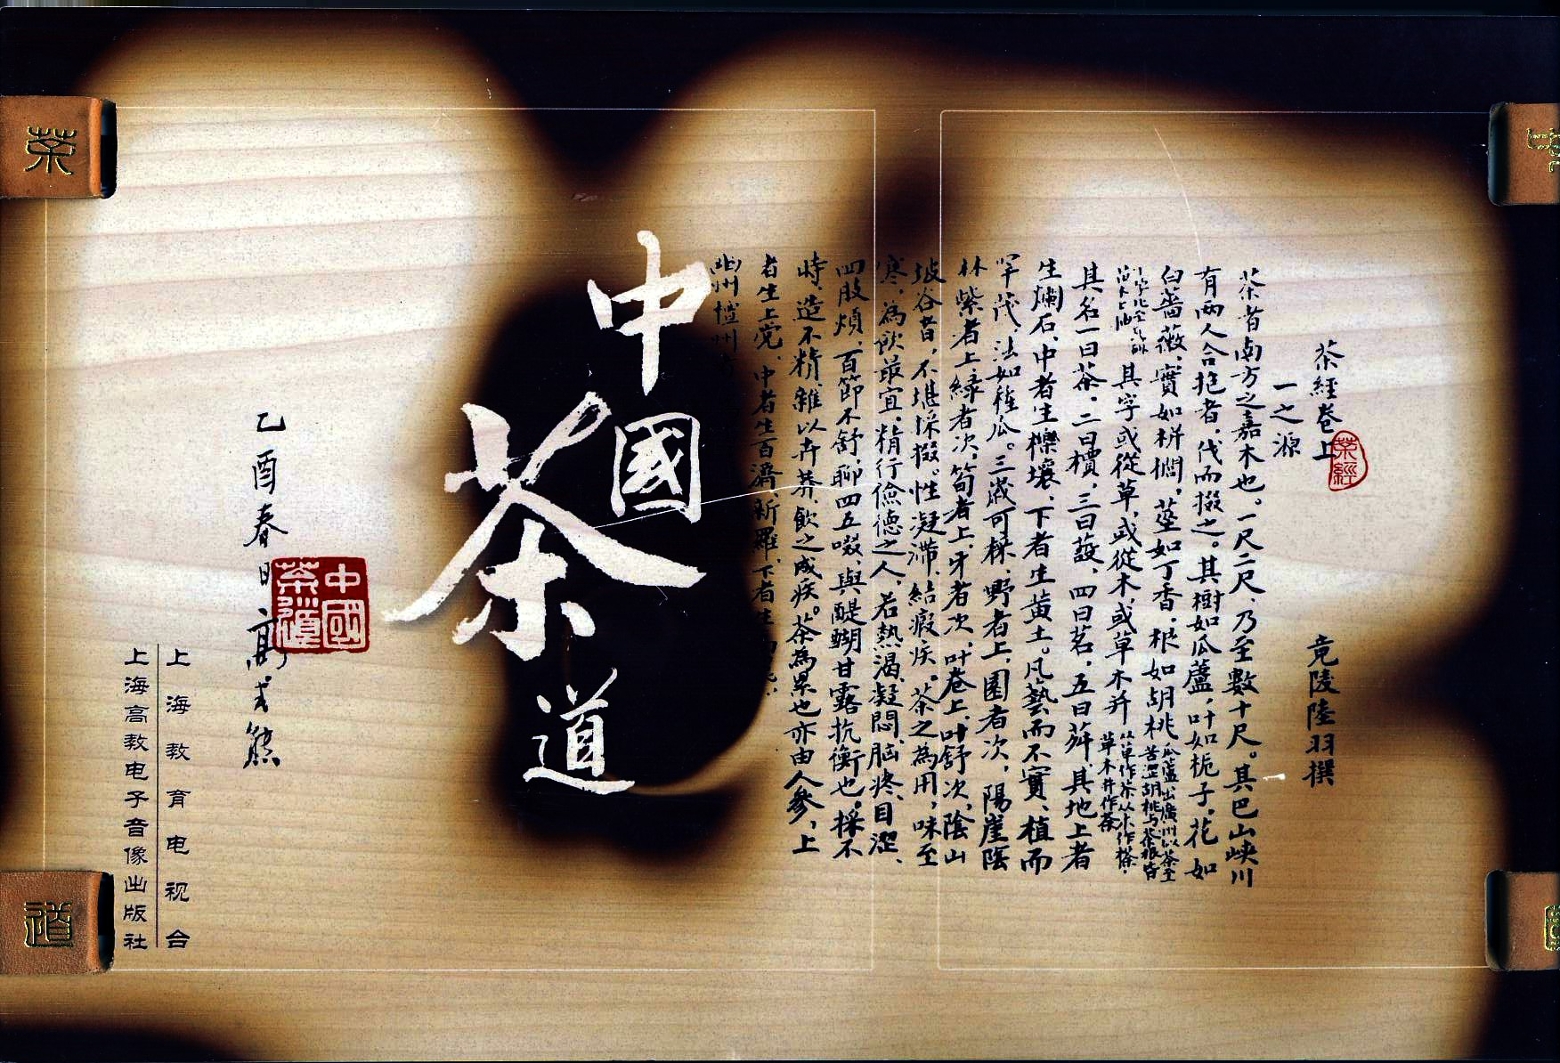 茶經卷上
茶經
竟陵陸羽撰
一之源
茶者南方之嘉木也。一尺二尺、乃至數十尺。其巴山峽川
有兩人合抱者、伐而掇之、其樹如瓜蘆、叶如栀子、花如
白薔薇、實如栟櫚、莖如丁香、根如胡桃
瓜蘆木出廣州似茶至
苦澀胡桃与茶根皆
其字或從草、或從木、或草木并
從草作茶從木作㮈
草木并作荼
其名一曰茶、二曰檟、三曰蔎、四曰茗、五曰荈、其地上者
生爛石、中者生櫟壤、下者生黄土。凡藝而不實、植而
罕茂、法如種瓜。三歲可採、野者上、園者次、陽崖陰
林紫者上、緑者次、筍者上、牙者次、叶卷上、叶舒次、陰山
坡谷者、不堪採掇。性凝滯、結瘕疾。茶之為用、味至
寒、為飲最宜、精行儉德之人、若熱渴凝悶、脑疼、目澀、
四肢煩、百節不舒、聊四五啜、與醍醐甘露抗衡也。採不
時、造不精、雜以卉莽、飲之成疾。茶為累也、亦由人參、上
者生上党、中者生百濟、新羅、下者生
幽州檀州
中國
茶
道
乙酉春日高式熊
中國茶道
上海教育电视台
上海高教电子音像出版社
茶
道